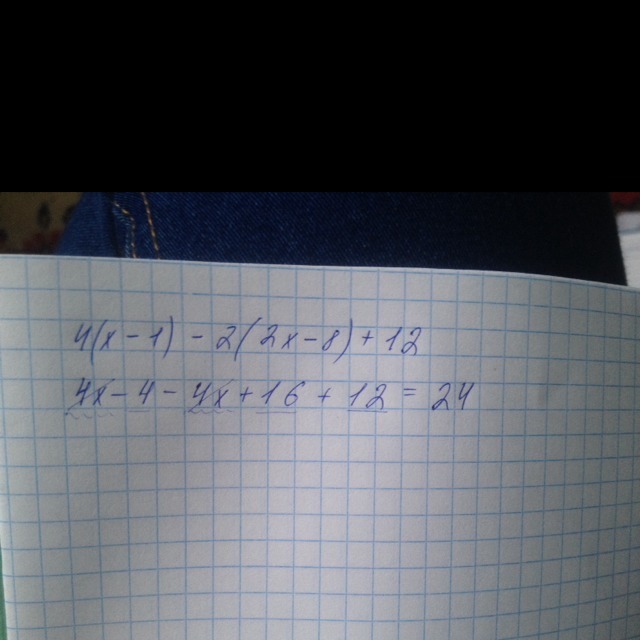 4(x-1) - 2(2x-8) + 12
4x - 4 - 4x + 16 + 12 = 24